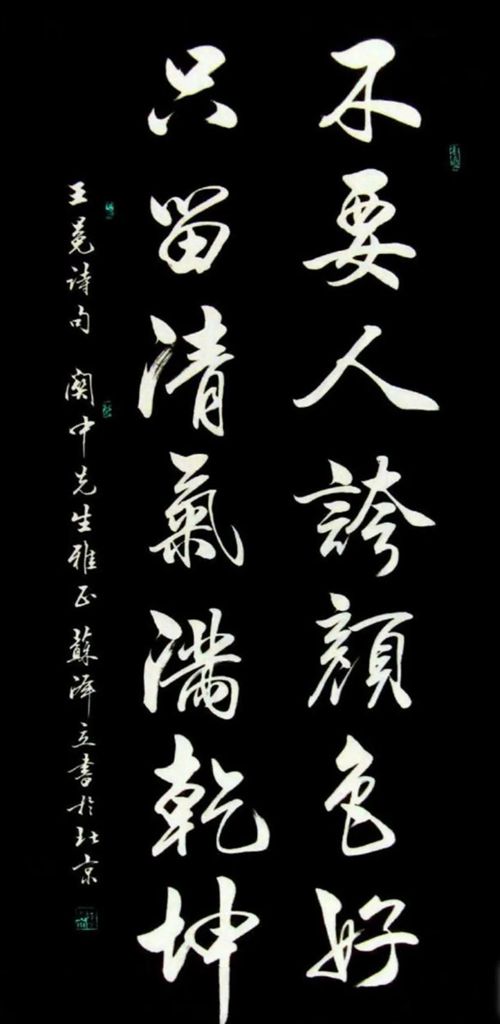 不要人誇顏色好
只留清氣滿乾坤
王冕诗句 関中先生雅正 蘇澤立書於北京